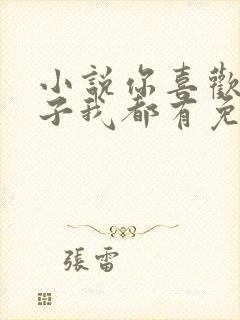 小說你喜歡
子我都有免
張雷